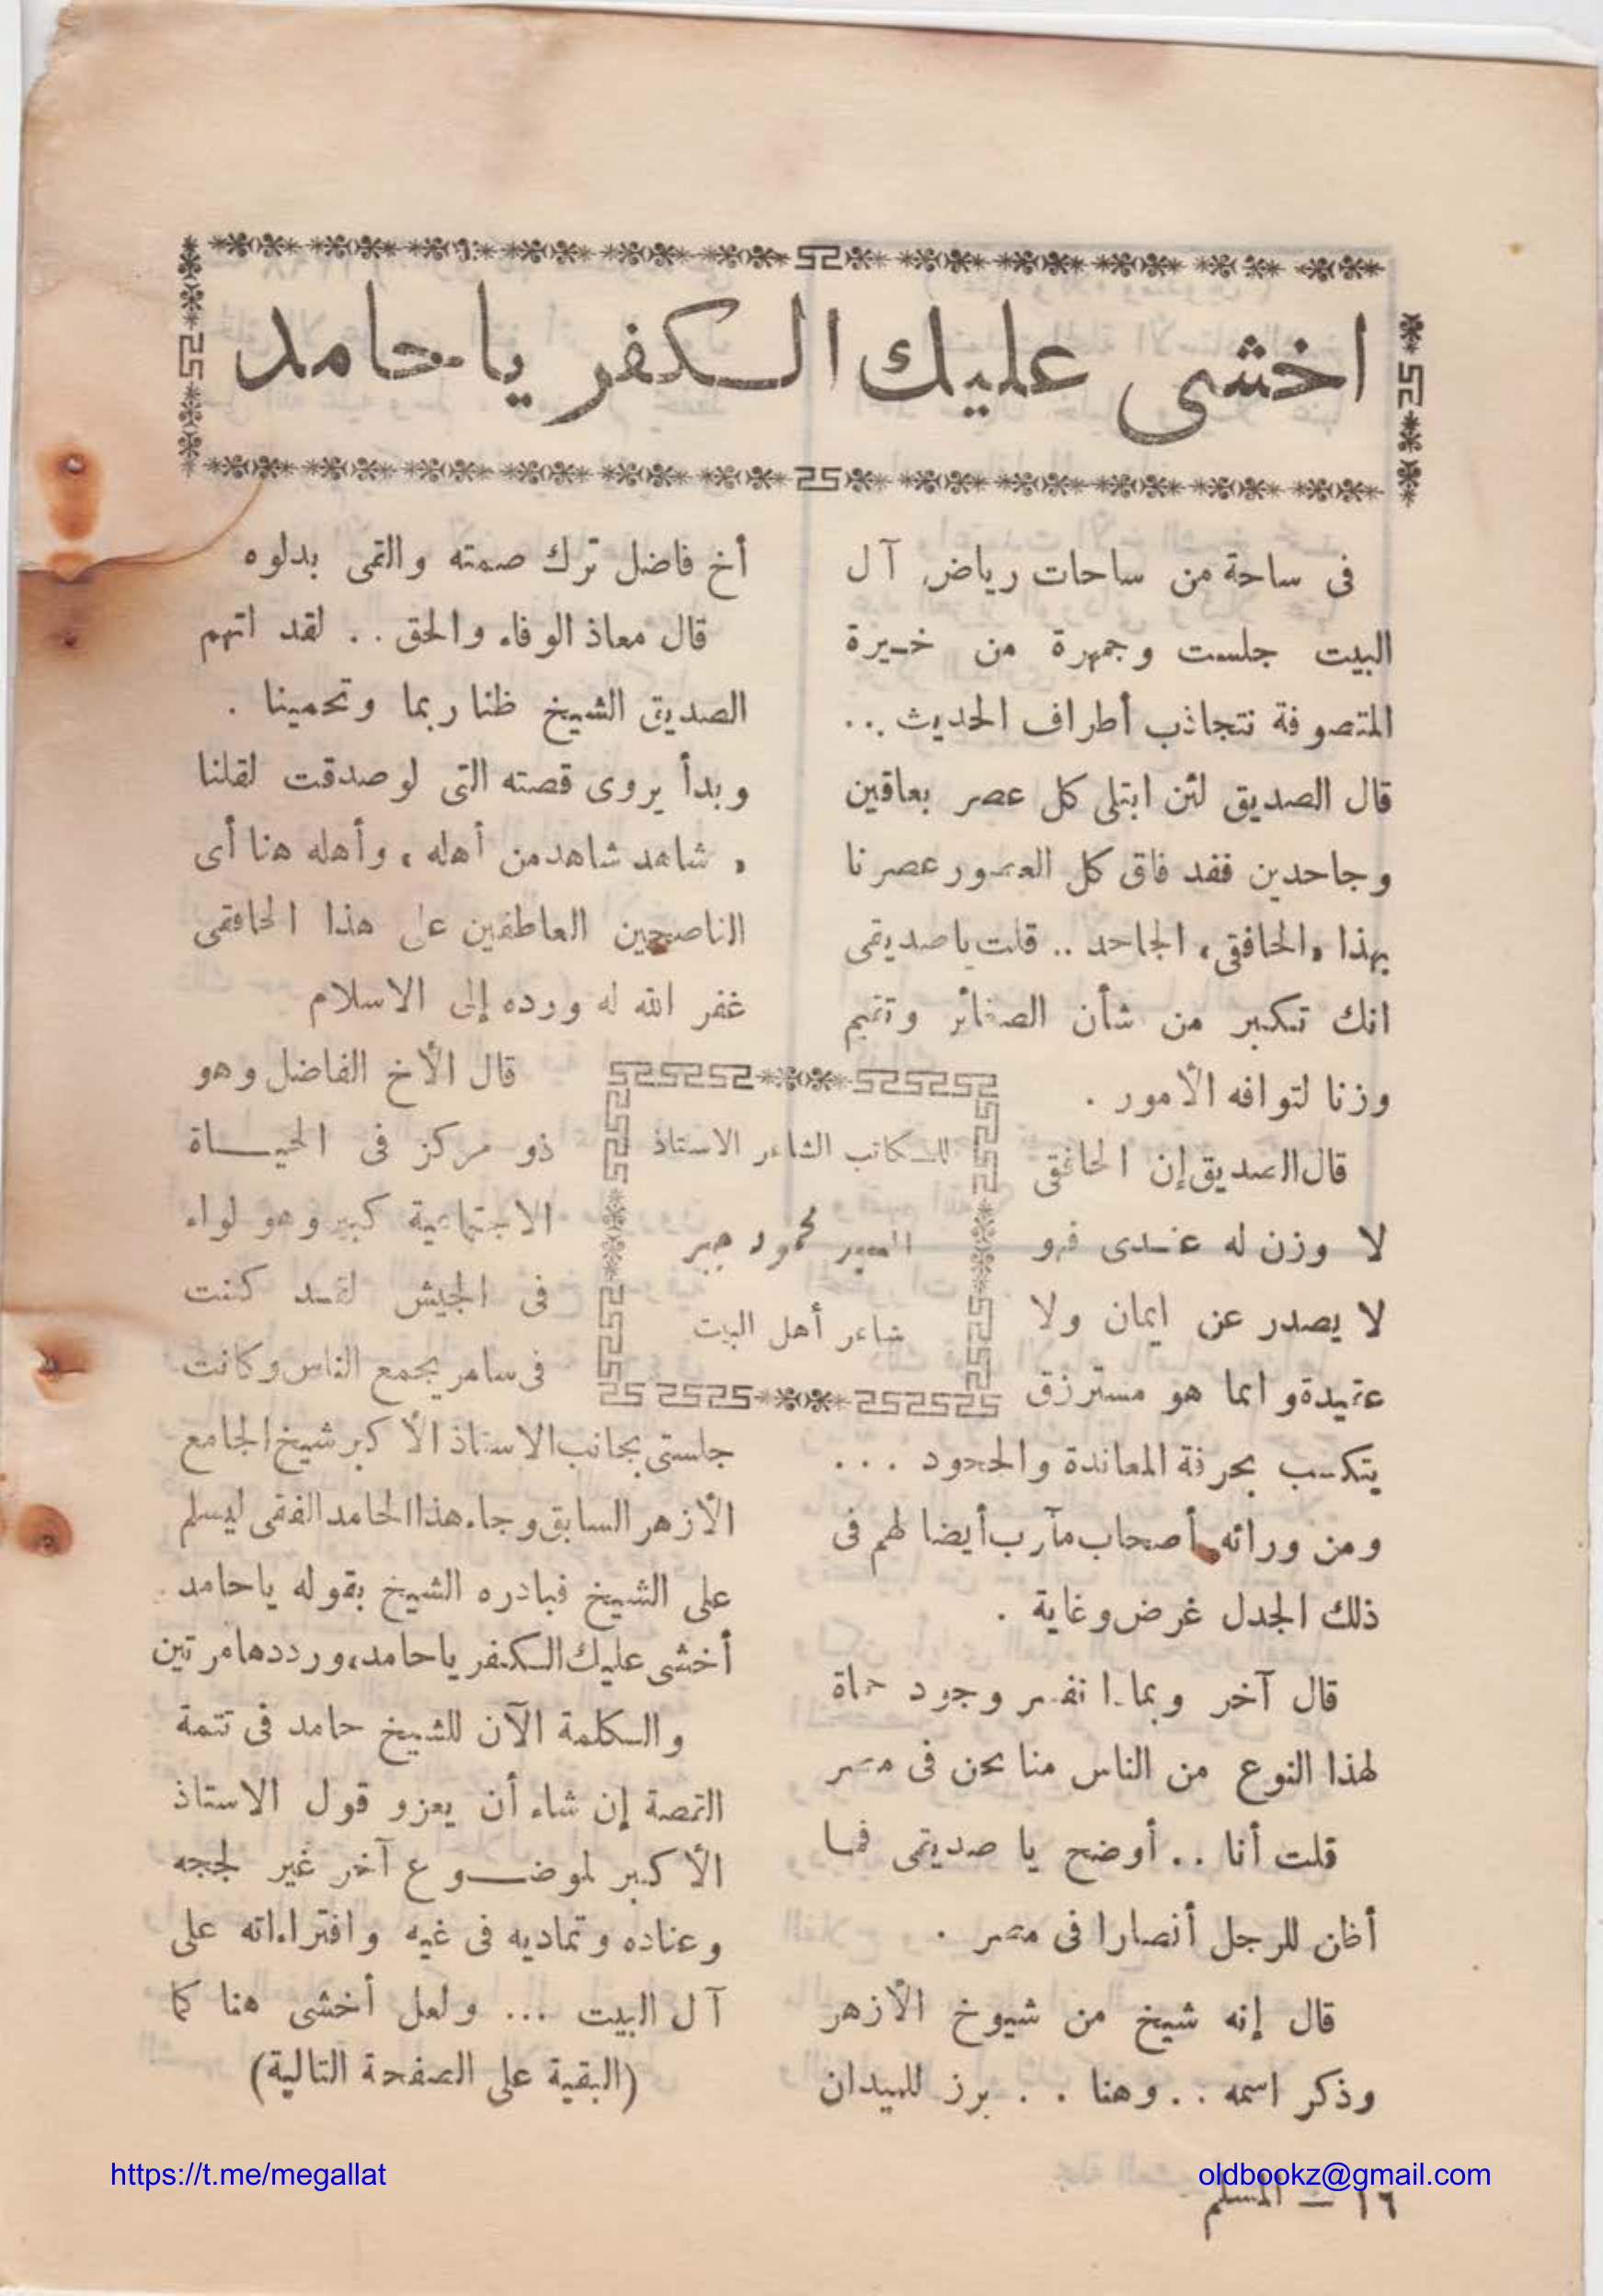 اخشى عليك الكفر يا حامد
فى ساحة من ساحات رياض آل
البيت جلست وجمهرة من خيرة
المتصوفة نتجاذب أطراف الحديث ..
قال الصديق لئن ابتلى كل عصر بعاقين
وجاحدين فقد فاق كل العصور عصرنا
بهذا «الحافقى» الجاحد .. قلت يا صديقى
انك تكبر من شأن الصغائر وتقيم
وزنا لتوافه الأمور .
قال الصديق إن الحافقى
لا وزن له عندى فهو
لا يصدر عن ايمان ولا
عقيدة وانما هو مسترزق
يتكسب بحرفة المعاندة والجحود ...
ومن ورائه أصحاب مآرب أيضا لهم فى
ذلك الجدل غرض وغاية .
قال آخر وبماذا نفسر وجود حماة
لهذا النوع من الناس منا نحن فى مصر
قلت أنا .. أوضح يا صديقى فما
أظن للرجل أنصارا فى مصر .
قال إنه شيخ من شيوخ الأزهر
وذكر اسمه .. وهنا .. برز للميدان
للكاتب الشاعر الاستاذ
السيد محمود جبر
شاعر أهل البيت
أخ فاضل ترك صمته والتقى بدلوه
قال معاذ الوفاء والحق .. لقد اتهم
الصديق الشيخ ظنا ربما وتخمينا .
وبدأ يروى قصته التى لو صدقت لقلنا
« شاهد شاهد من أهله » وأهله هنا أى
الناصحين العاطفين على هذا الحافقى
غفر الله له ورده إلى الاسلام
قال الأخ الفاضل وهو
ذو مركز فى الحياة
الاجتماعية كبير وهو لواء
فى الجيش لقد كنت
فى سامر يجمع الناس وكانت
جلستى بجانب الاستاذ الأكبر شيخ الجامع
الأزهر السابق وجاء هذا الحامد الفقى ليسلم
على الشيخ فبادره الشيخ بقوله يا حامد
أخشى عليك الكفر يا حامد، ورددها مرتين
والكلمة الآن للشيخ حامد فى تتمة
القصة إن شاء أن يعزو قول الاستاذ
الأكبر لموضوع آخر غير لججه
وعناده وتماديه فى غيه وافتراءاته على
آل البيت ... ولعل أخشى هنا كما
(البقية على الصفحة التالية)
١٦ — المسلم
https://t.me/megallat
oldbookz@gmail.com